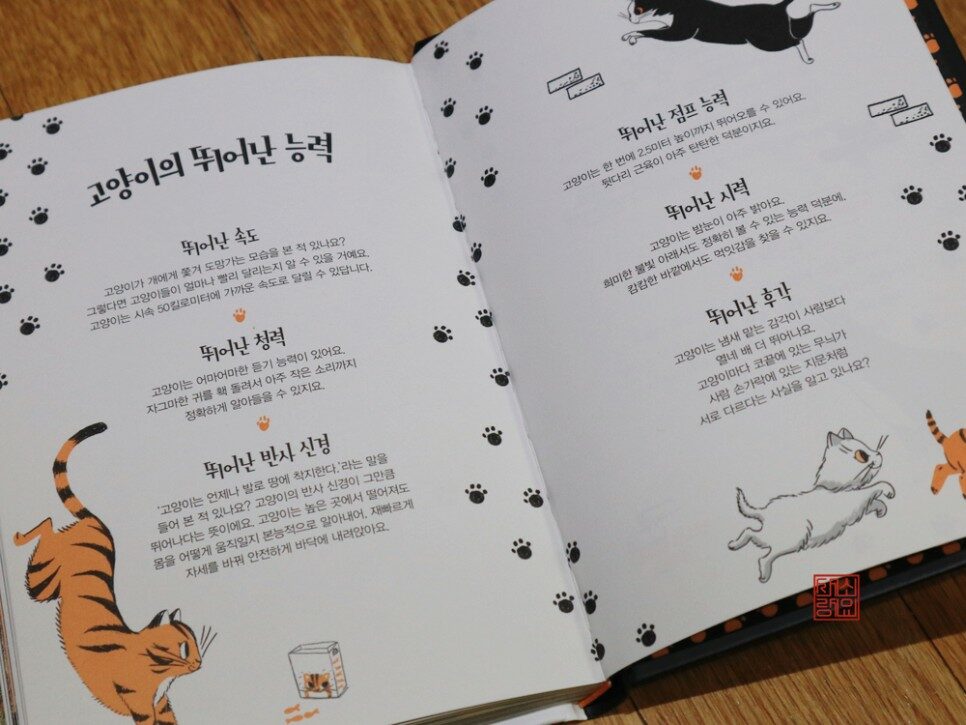 고양이의 뛰어난 능력
뛰어난 속도
고양이가 개에게 쫓겨 도망가는 모습을 본 적 있나요?
그렇다면 고양이들이 얼마나 빨리 달리는지 알 수 있을 거예요.
고양이는 시속 50킬로미터에 가까운 속도로 달릴 수 있답니다.
뛰어난 청력
고양이는 어마어마한 듣기 능력이 있어요.
자그마한 귀를 홱 돌려서 아주 작은 소리까지
정확하게 알아들을 수 있지요.
뛰어난 반사 신경
'고양이는 언제나 발로 땅에 착지한다.'라는 말을
들어 본 적 있나요? 고양이의 반사 신경이 그만큼
뛰어나다는 뜻이에요. 고양이는 높은 곳에서 떨어져도
몸을 어떻게 움직일지 본능적으로 알아내어, 재빠르게
자세를 바꿔 안전하게 바닥에 내려앉아요.
뛰어난 점프 능력
고양이는 한 번에 2.5미터 높이까지 뛰어오를 수 있어요.
뒷다리 근육이 아주 탄탄한 덕분이지요.
뛰어난 시력
고양이는 밤눈이 아주 밝아요.
희미한 불빛 아래서도 정확히 볼 수 있는 능력 덕분에,
캄캄한 바깥에서도 먹잇감을 찾을 수 있지요.
뛰어난 후각
고양이는 냄새 맡는 감각이 사람보다
열네 배 더 뛰어나요.
고양이마다 코끝에 있는 무늬가
사람 손가락에 있는 지문처럼
서로 다르다는 사실을 알고 있나요?